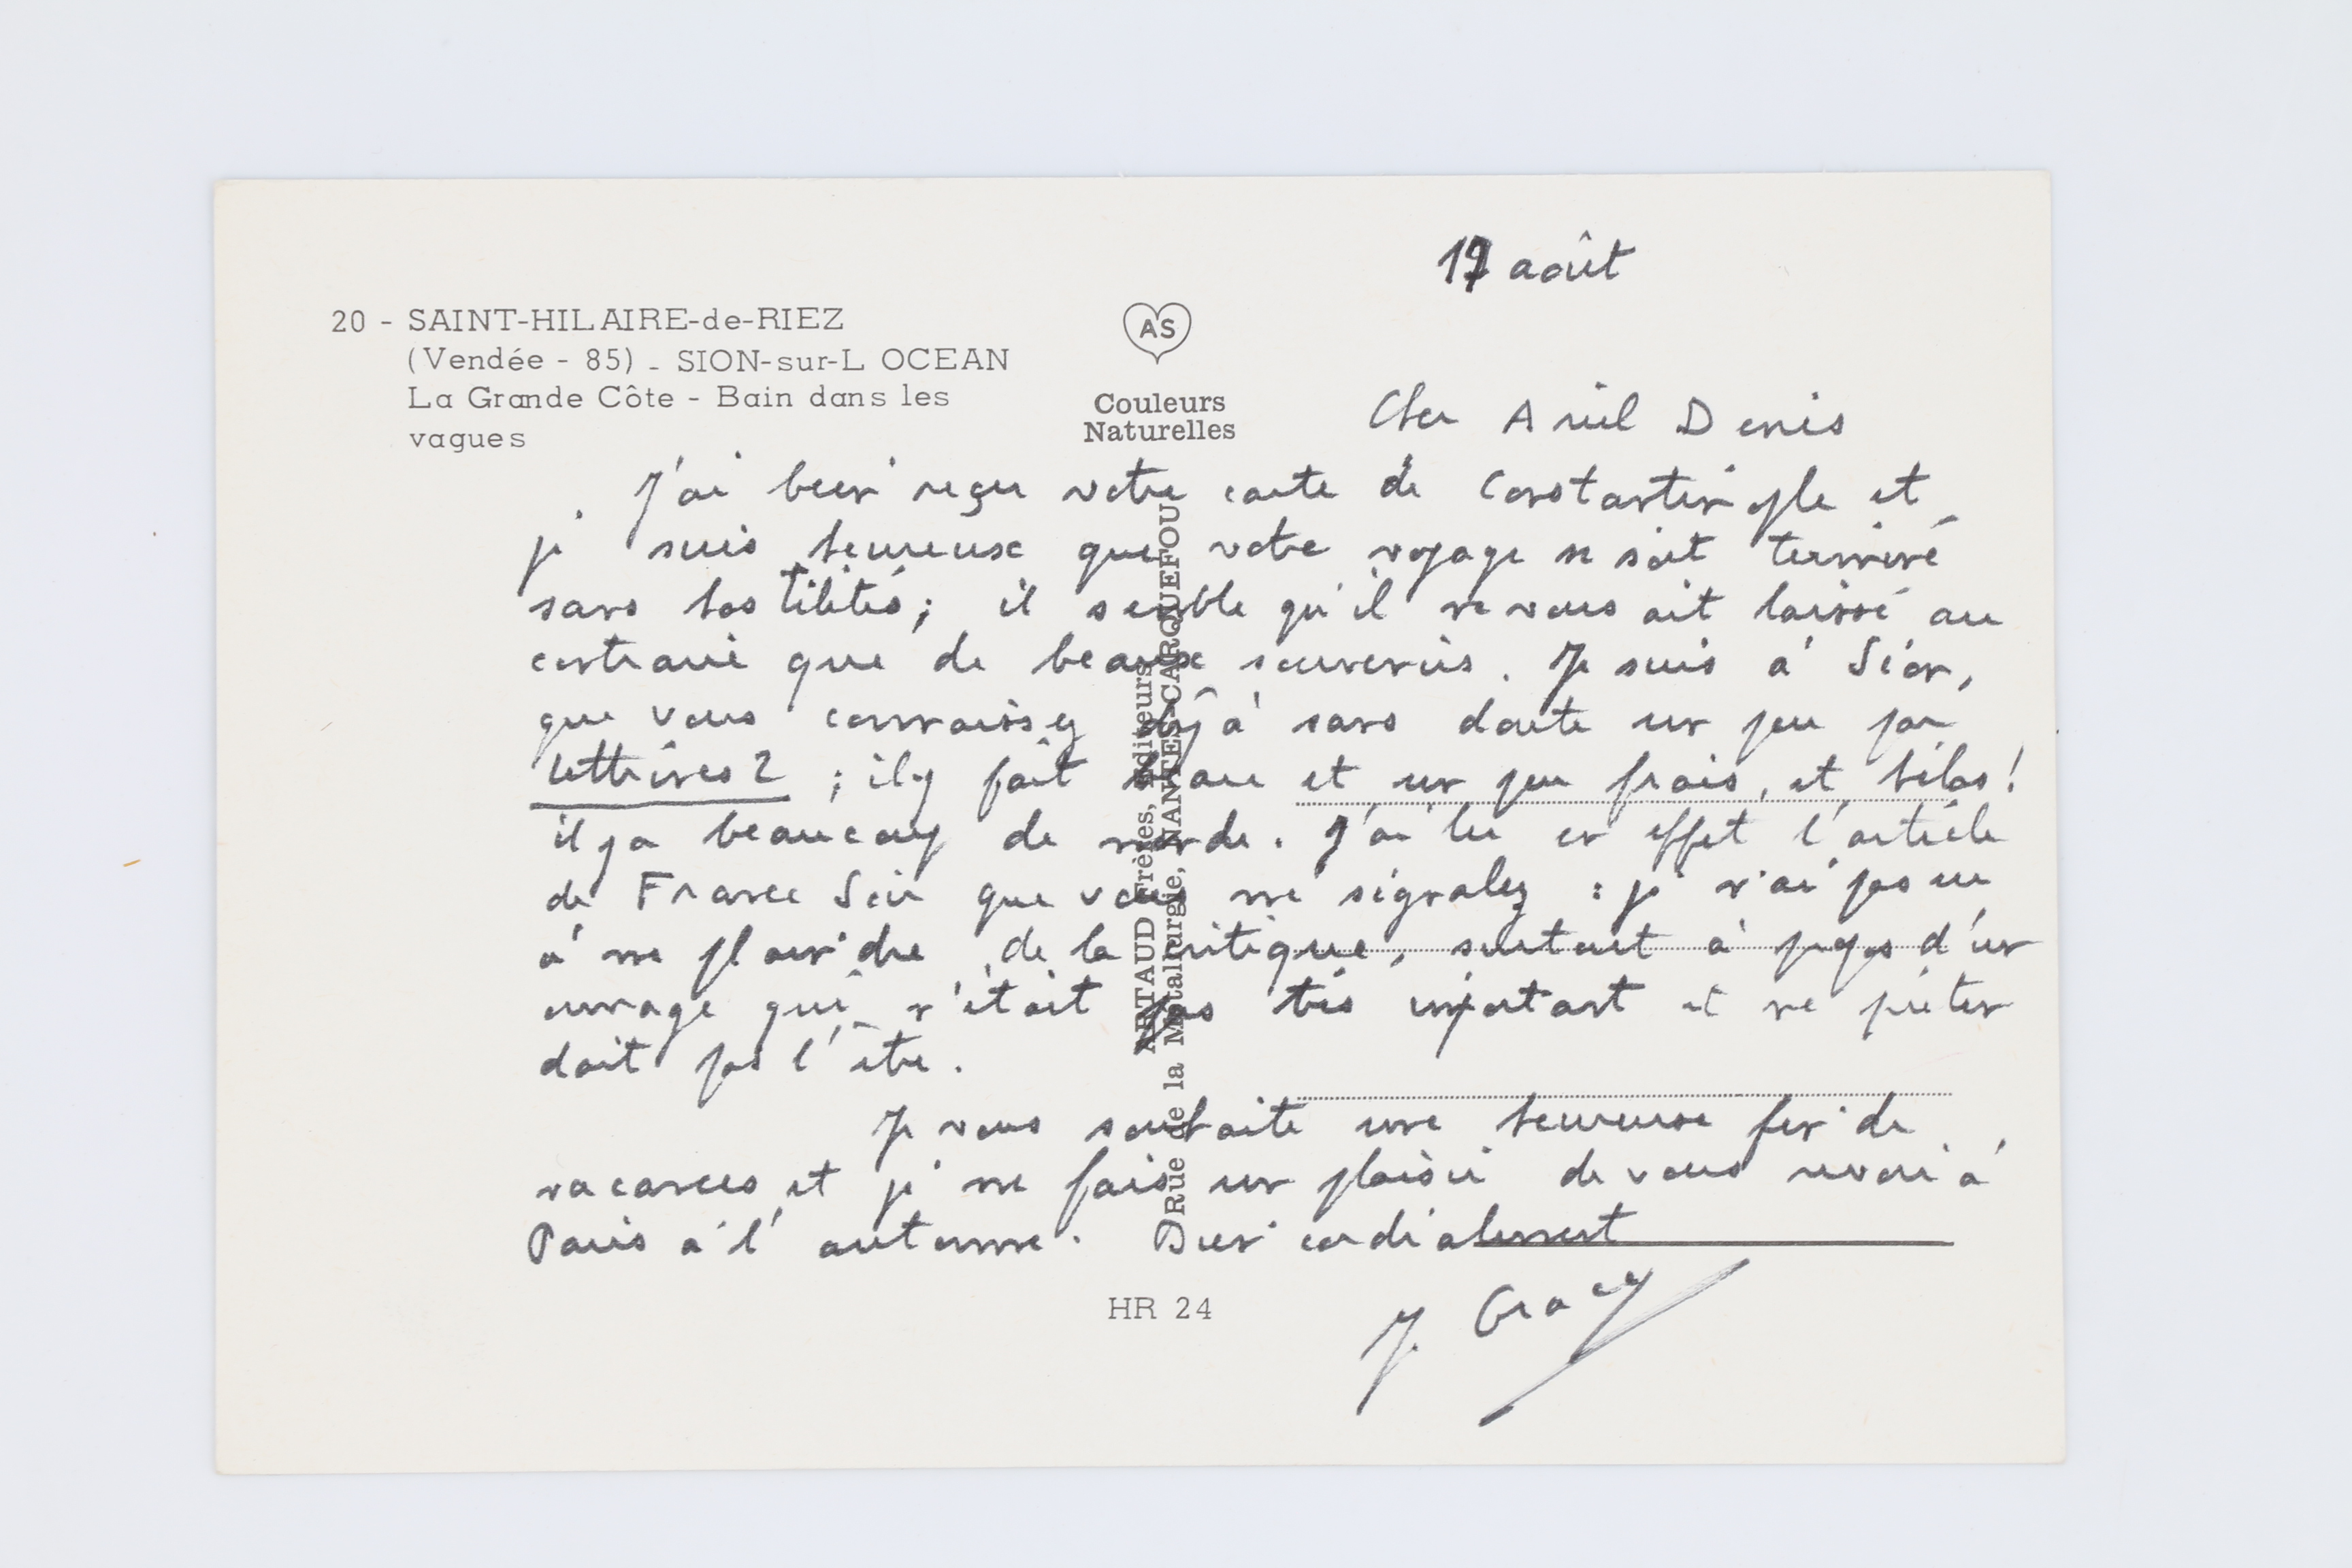 17 août
20 - SAINT-HILAIRE-de-RIEZ
(Vendée - 85) - SION-sur-L OCEAN
La Grande Côte - Bain dans les
vagues
AS
Couleurs
Naturelles
ARTAUD Frères, Éditeurs
Rue de la Métallurgie, NANTES-CARQUEFOU
Cher Ariel Denis
J'ai bien reçu votre carte de Constantinople et
je suis heureux que votre voyage se soit terminé
sans hostilités ; il semble qu'il ne vous ait laissé au
contraire que de beaux souvenirs. Je suis à Sion,
que vous connaissez déjà sans doute un peu par
Lettrines 2 ; il y fait beau et un peu frais, et hélas !
il y a beaucoup de monde. J'ai lu en effet l'article
de France Soir que vous me signalez : je n'ai pas eu
à me plaindre de la critique, surtout à propos d'un
ouvrage qui n'était pas très important et ne préten
dait pas l'être.
Je vous souhaite une heureuse fin de
vacances et je me fais un plaisir de vous revoir à
Paris à l'automne. Bien cordialement
J. Gracq
HR 24